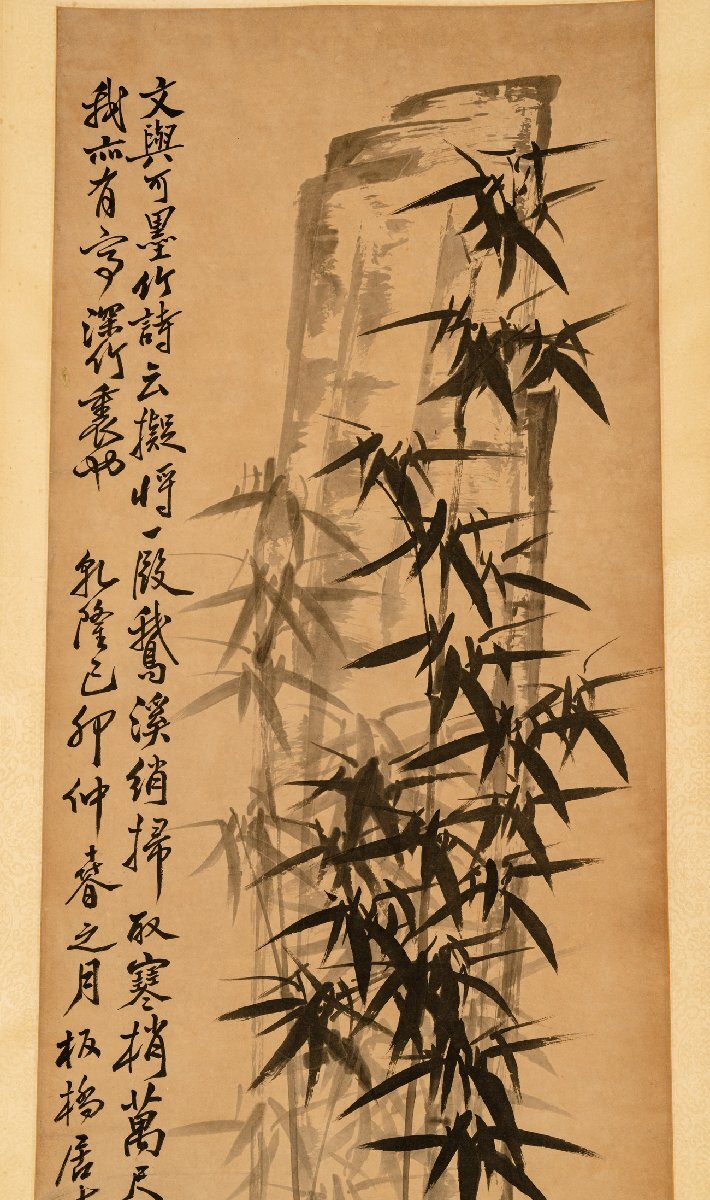 文與可墨竹詩云擬將一段鵝溪絹掃取寒梢萬尺
我亦有亭深竹裏也 乾隆己卯仲春之月板橋居